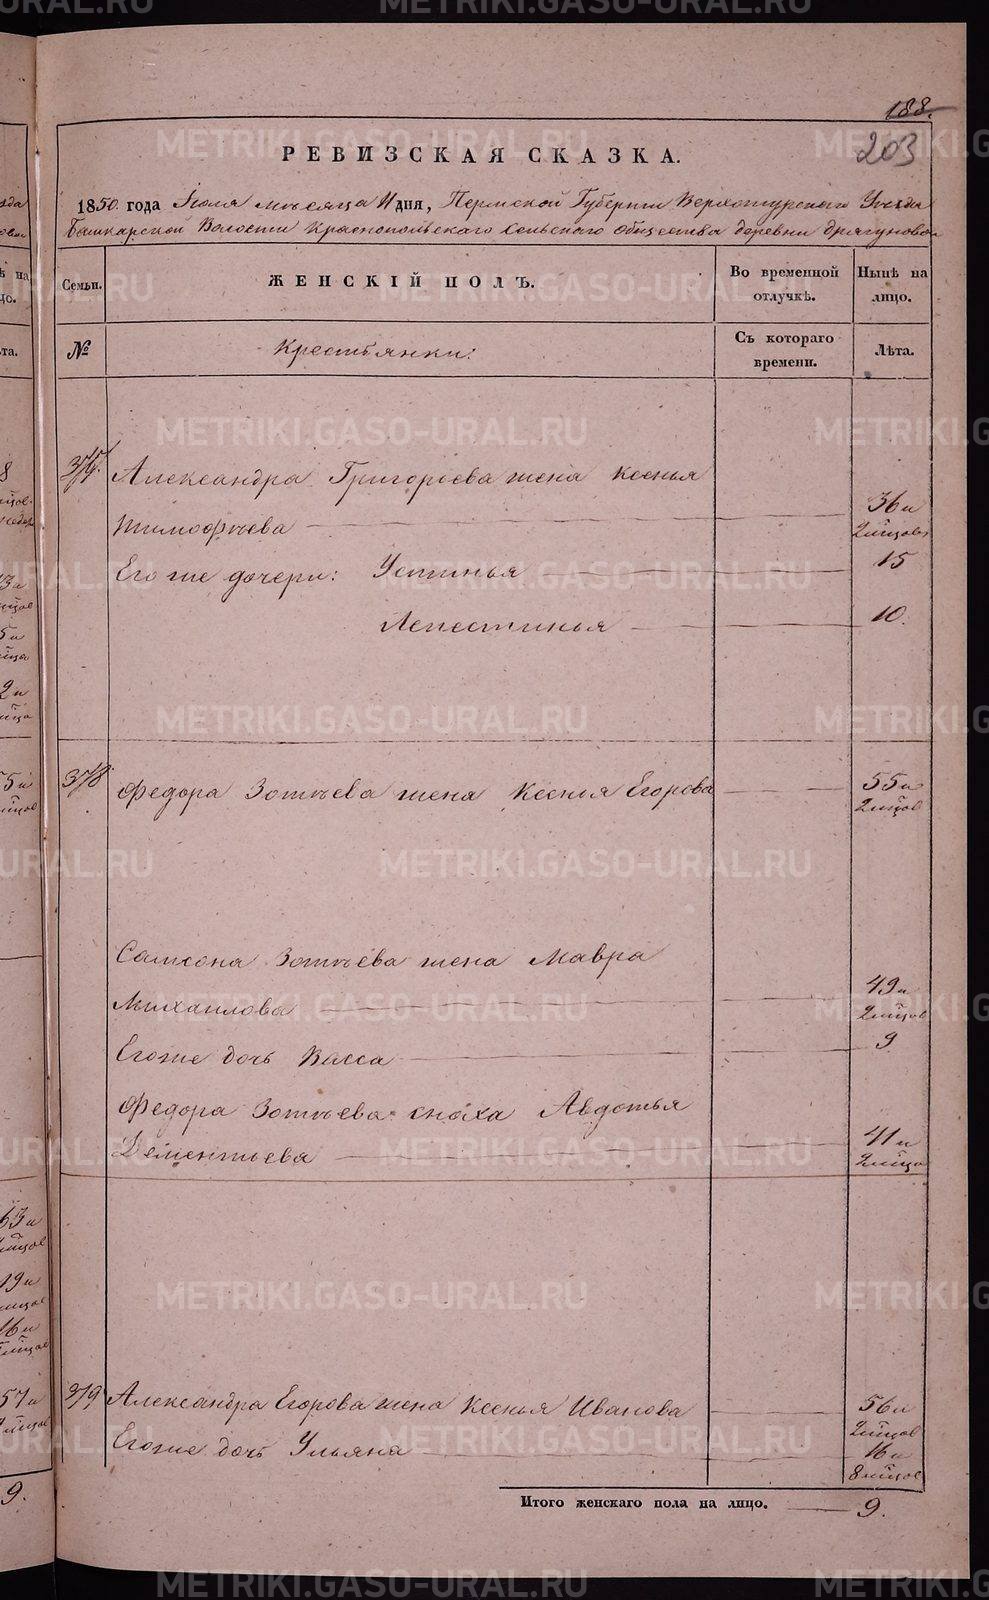 188.
203
РЕВИЗСКАЯ СКАЗКА.
1850 года Июля месяца 11 дня, Пермской Губернии Верхотурскаго Уезда
Башкарской Волости Краснопольскаго сельскаго общества деревни Дрягуновой
Семьи. ЖЕНСКІЙ ПОЛЪ. Во временной отлучкѣ. Нынѣ на лицо.
№ Крестьянки: Съ котораго времени. Лѣта.
Александра Григорьева жена Ксенья
Тимофѣева 36 и
2 мѣсяцов
Его же дочери: Устинья 15
Лепестинья 10.
378 Федора Зотѣева жена Ксенья Егорова 55 и
2 мѣсяцов
Самсона Зотѣева жена Мавра
Михаилова 49 и
2 мѣсяцов
Его же дочь Васса 9
Федора Зотѣева сноха Авдотья
Дементьева 41 и
2 мѣсяцо
379 Александра Егорова жена Ксенья Иванова 56 и
2 мѣсяцов
Его же дочь Ульяна 16 и
8 мѣсяцов
Итого женскаго пола на лицо. 9.
METRIKI.GASO-URAL.RU